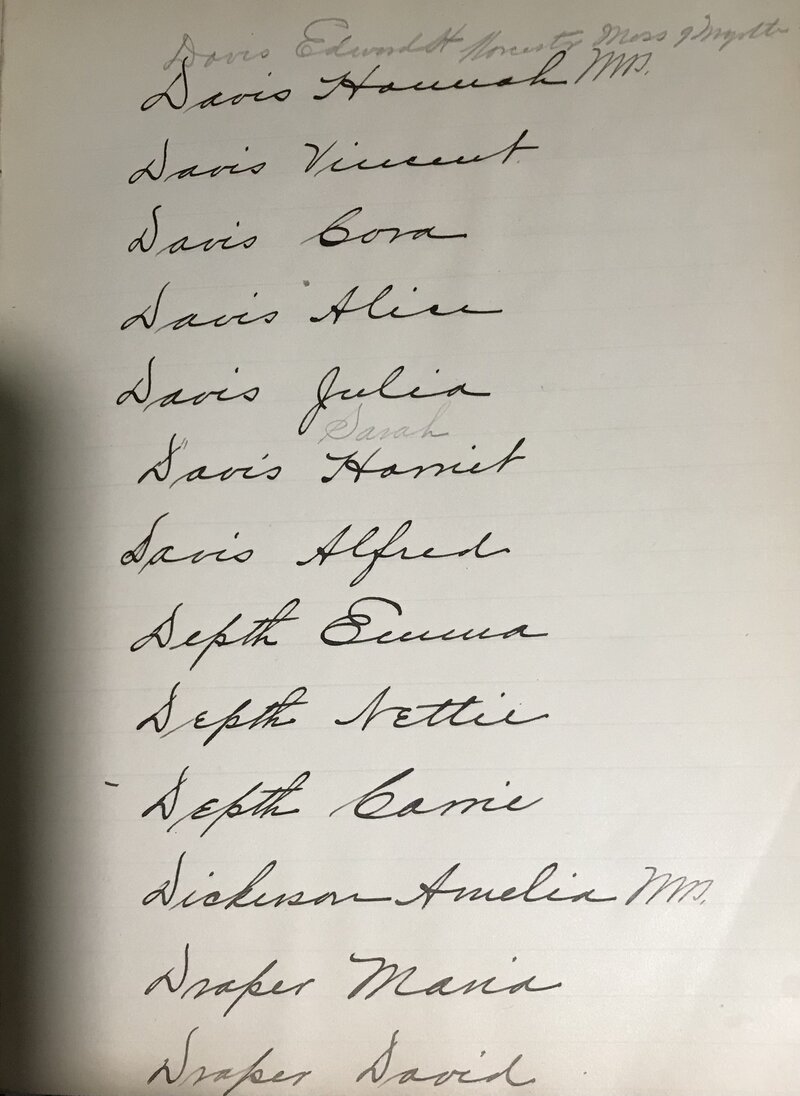 Davis Edward H Worcester Mass
Davis Hannah Mrs.
Davis Vincent
Davis Cora
Davis Alice
Davis Julia
Sarah
Davis Harriet
Davis Alfred
Depth Emma
Depth Nettie
Depth Carrie
Dickerson Amelia Mrs.
Draper Maria
Draper David